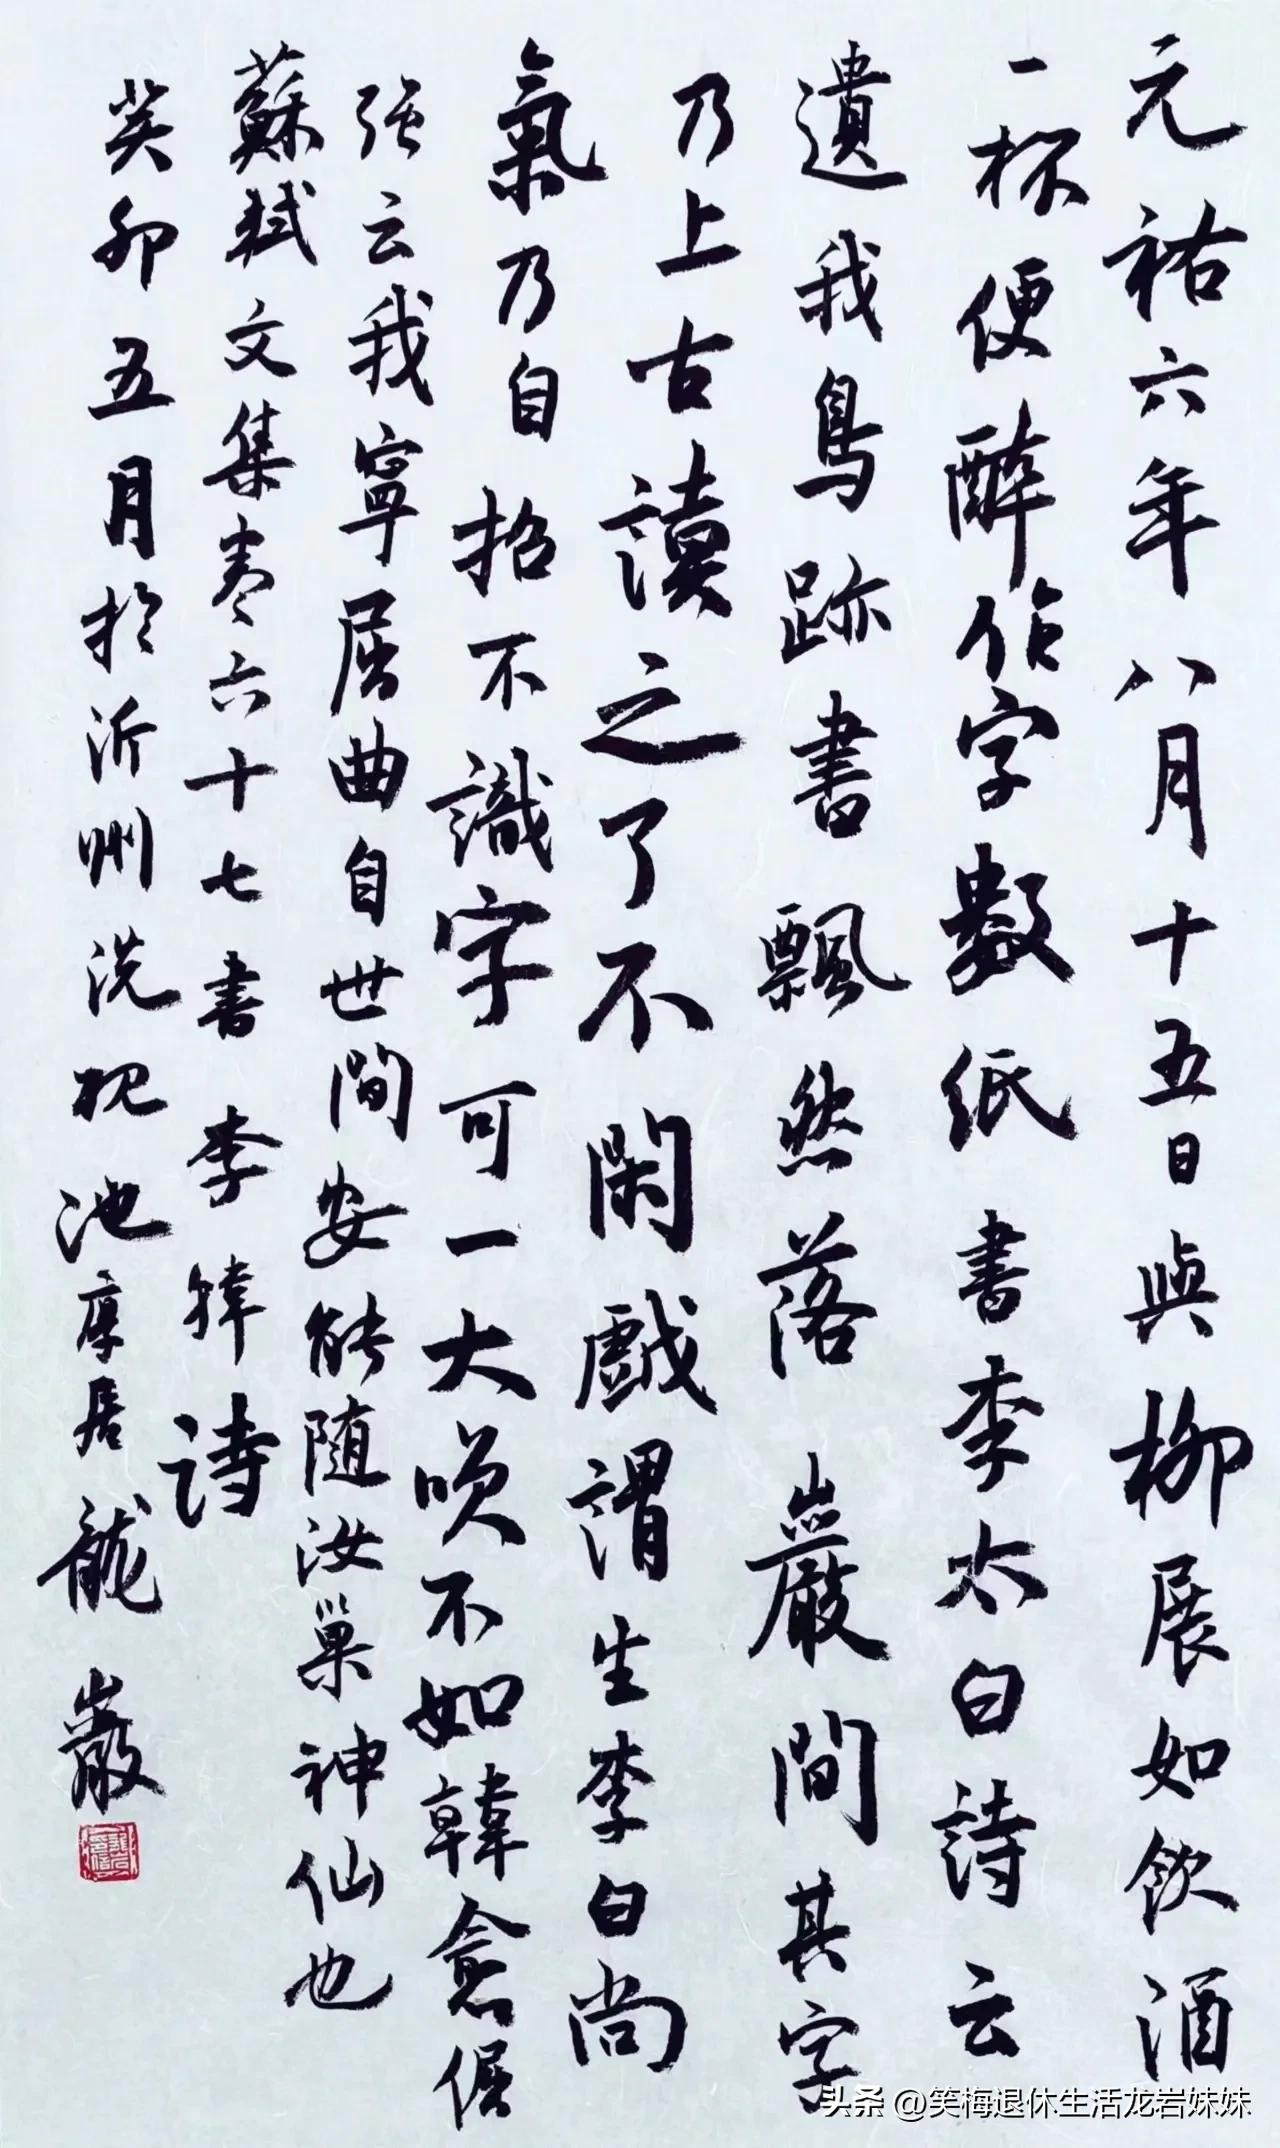 元祐六年八月十五日與柳展如飲酒
一杯便醉作字數紙書李太白詩云
遺我鳥跡書飄然落巖間其字
乃上古讀之了不閑戲謂生李白尚
氣乃自招不識字可一大笑不如韓愈倔
强云我寧屈曲自世間安能随汝巢神仙也
蘇軾文集卷六十七書李韓詩
癸卯五月於沂州洗硯池摩居龍巖
头条 @笑梅退休生活龙岩妹妹